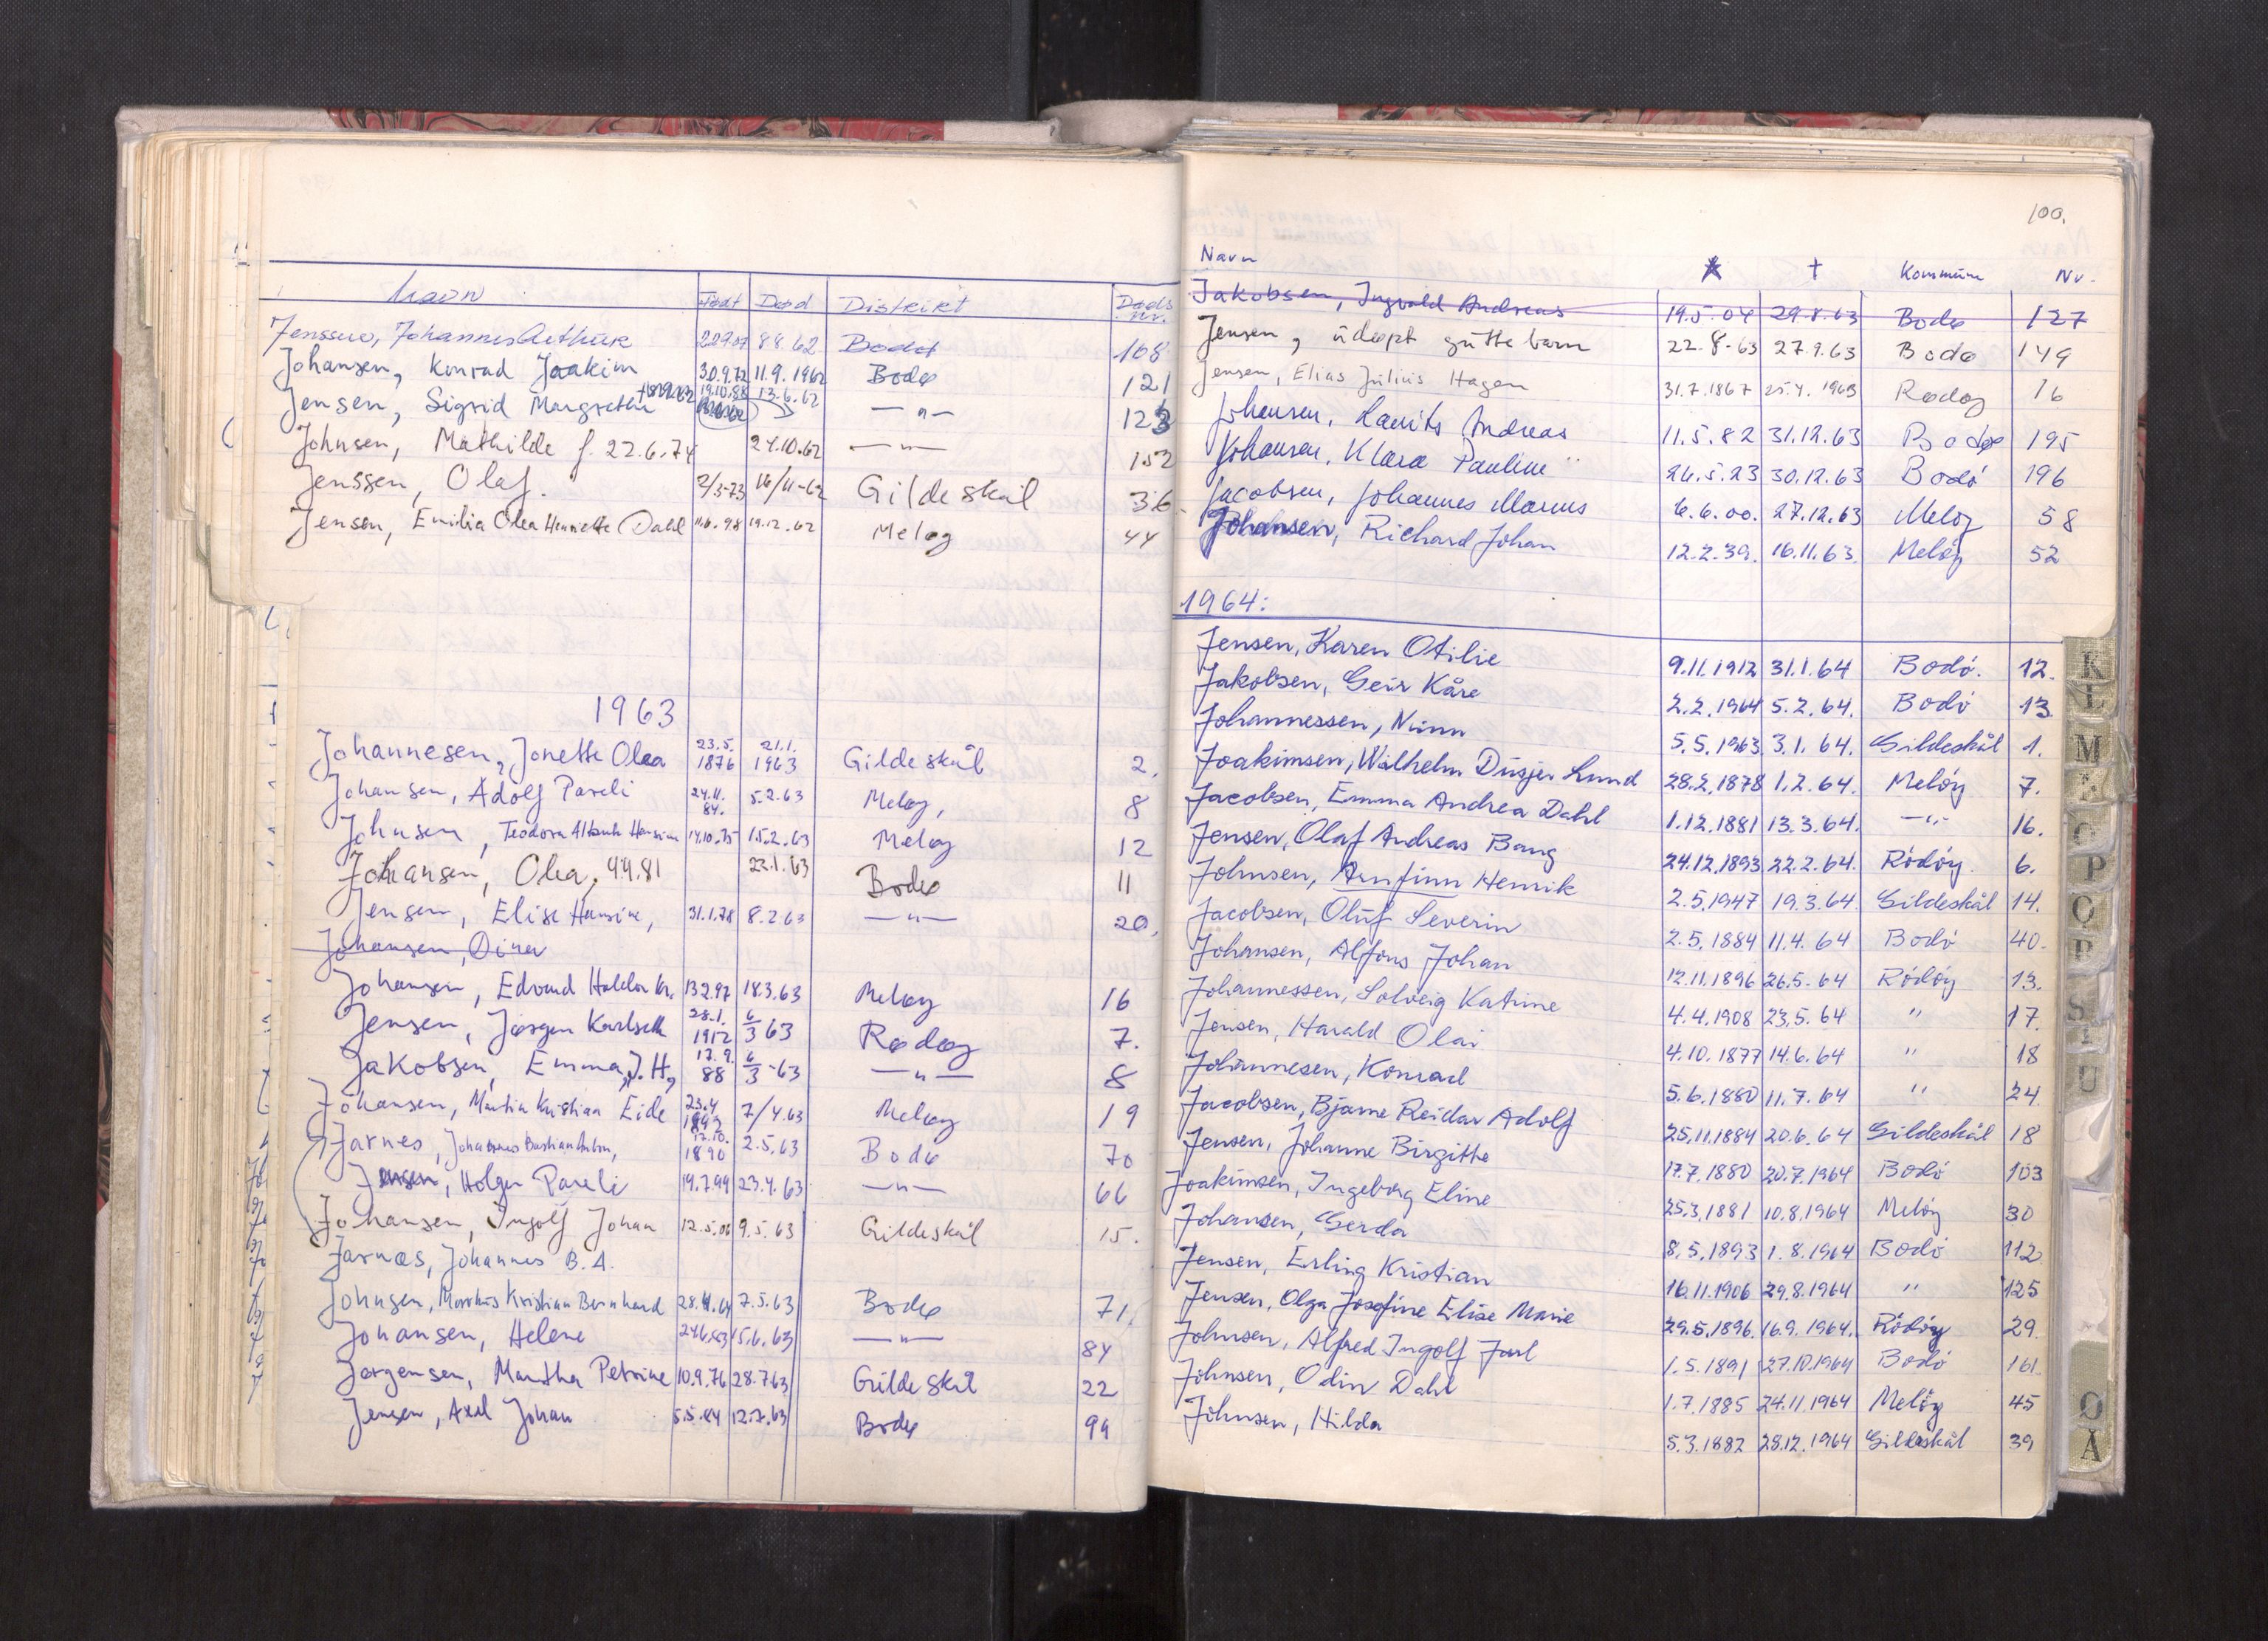 Navn Født Død Distrikt Døds nr.
Jenssen, Johannes Arthur 22907 8 8. 62 Bodø 108
Johansen, Konrad Joakim 30.9.72 11.9. 1962 Bodø 121
Jensen, Sigrid Margrethe 19.10.88 13.6.62 — " — 123
Johnsen, Mathilde f. 22.6.74 24.10.62 — " — 152
Jenssen, Olaf. 2/3-73 16/11-62 Gildeskål 36
Jensen, Emilia Olea Henriette Dahl 11.6.98 19.12.62 Meløy 44
1963
Johannesen, Jonette Olea 23.5. 1876 21.1. 1963 Gildeskål 2.
Johansen, Adolf Pareli 24.11. 84. 5.2.63 Meløy, 8
Johnsen, Teodora Hansine 14.10.75 15.2.63 Meløy 12
Johansen, Olea. 4.9.81 22.1.63 Bodø 11
Jensen, Elise Hansine, 31.1.78 8.2.63 — " — 20.
Johansen, Dina
Johansen, Edvard Haldor Kr. 13.2.97 18.3.63 Meløy 16
Jensen, Jørgen Karlseth 28.1. 1912 6/3 63 Rødøy 7.
Jakobsen, Emma, J. H, 17.9. 88 6/3-63 — " — 8
Johansen, Martin Kristian Eide 23.4 1893 7/4.63 Meløy 19
Jarnes, Johannes Bastian Anton, 12.10. 1890 2.5.63 Bodø 70
Jensen, Holger Pareli 19.7.99 23.4.63 — " — 66
Johansen, Ingolf Johan 12.5.06 9.5.63 Gildeskål 15.
Jarnæs, Johannes B. A.
Johnsen, Markus Kristian Bernhard 28.4.64 7.5.63 Bodø 71.
Johansen, Helene 24.6.83 15.6.63 — " — 84
Jørgensen, Martha Petrine 10.9.76 28.7.63 Gildeskål 22
Jensen, Axel Johan 5.5.84 12.7.63 Bodø 99
100.
Navn * † Kommune Nr.
Jakobsen, Ingvald Andreas 19.5.04 29.8.63 Bodø 127
Jensen, udøpt guttebarn 22.8-63 27.9.63 Bodø 149
Jensen, Elias Julius Hagen 31.7.1867 25.4.1963 Rødøy 16
Johansen, Laurits Andreas 11.5.82 31.12.63 Bodø 195
Johansen, Klara Pauline 26.5.23 30.12.63 Bodø 196
Jacobsen, Johannes Marius 6.6.00. 27.12.63 Meløy 58
Johansen, Richard Johan 12.2.39. 16.11.63. Meløy 52
1964:
Jensen, Karen Otilie 9.11.1912 31.1.64 Bodø. 12.
Jakobsen, Geir Kåre 2.2.1964 5.2.64. Bodø 13
Johannessen, Nunn 5.5.1963 3.1.64. Gildeskål 1.
Joakimsen, Wilhelm Dusjer Lund 28.2.1878 1.2.64. Meløy 7.
Jacobsen, Emma Andrea Dahl 1.12.1881 13.3.64. —"— 16.
Jensen, Olaf Andreas Bang 24.12.1893 22.2.64. Rødøy 6.
Johnsen, Arnfinn Henrik 2.5.1947 19.3.64. Gildeskål 14.
Jacobsen, Oluf Severin 2.5.1884 11.4.64 Bodø 40.
Johansen, Alfons Johan 12.11.1896 26.5.64 Rødøy 13.
Johannessen, Solveig Katrine 4.4.1908 23.5.64 " 17.
Jensen, Harald Olai 4.10.1877 14.6.64 " 18
Johannesen, Konrad 5.6.1880 11.7.64 " 24
Jacobsen, Bjarne Reidar Adolf 25.11.1884 20.6.64 Gildeskål 18
Jensen, Johanne Birgitte 17.7.1880 20.7.1964 Bodø 103
Joakimsen, Ingeborg Eline 25.3.1881 10.8.1964 Meløy 30
Johansen, Gerda 8.5.1893 1.8.1964 Bodø 112
Jensen, Erling Kristian 16.11.1906 29.8.1964 " 125
Jensen, Olga Josefine Elise Marie 29.5.1896 16.9.1964. Rødøy 29.
Johnsen, Alfred Ingolf Jarl 1.5.1891 27.10.1964 Bodø 161
Johnsen, Odin Dahl 1.7.1885 24.11.1964 Meløy 45
Johnsen, Hilda 5.3.1882 28.12.1964 Gildeskål 39
K
L
M
O
P
Q
R
S
U
Ø
Å